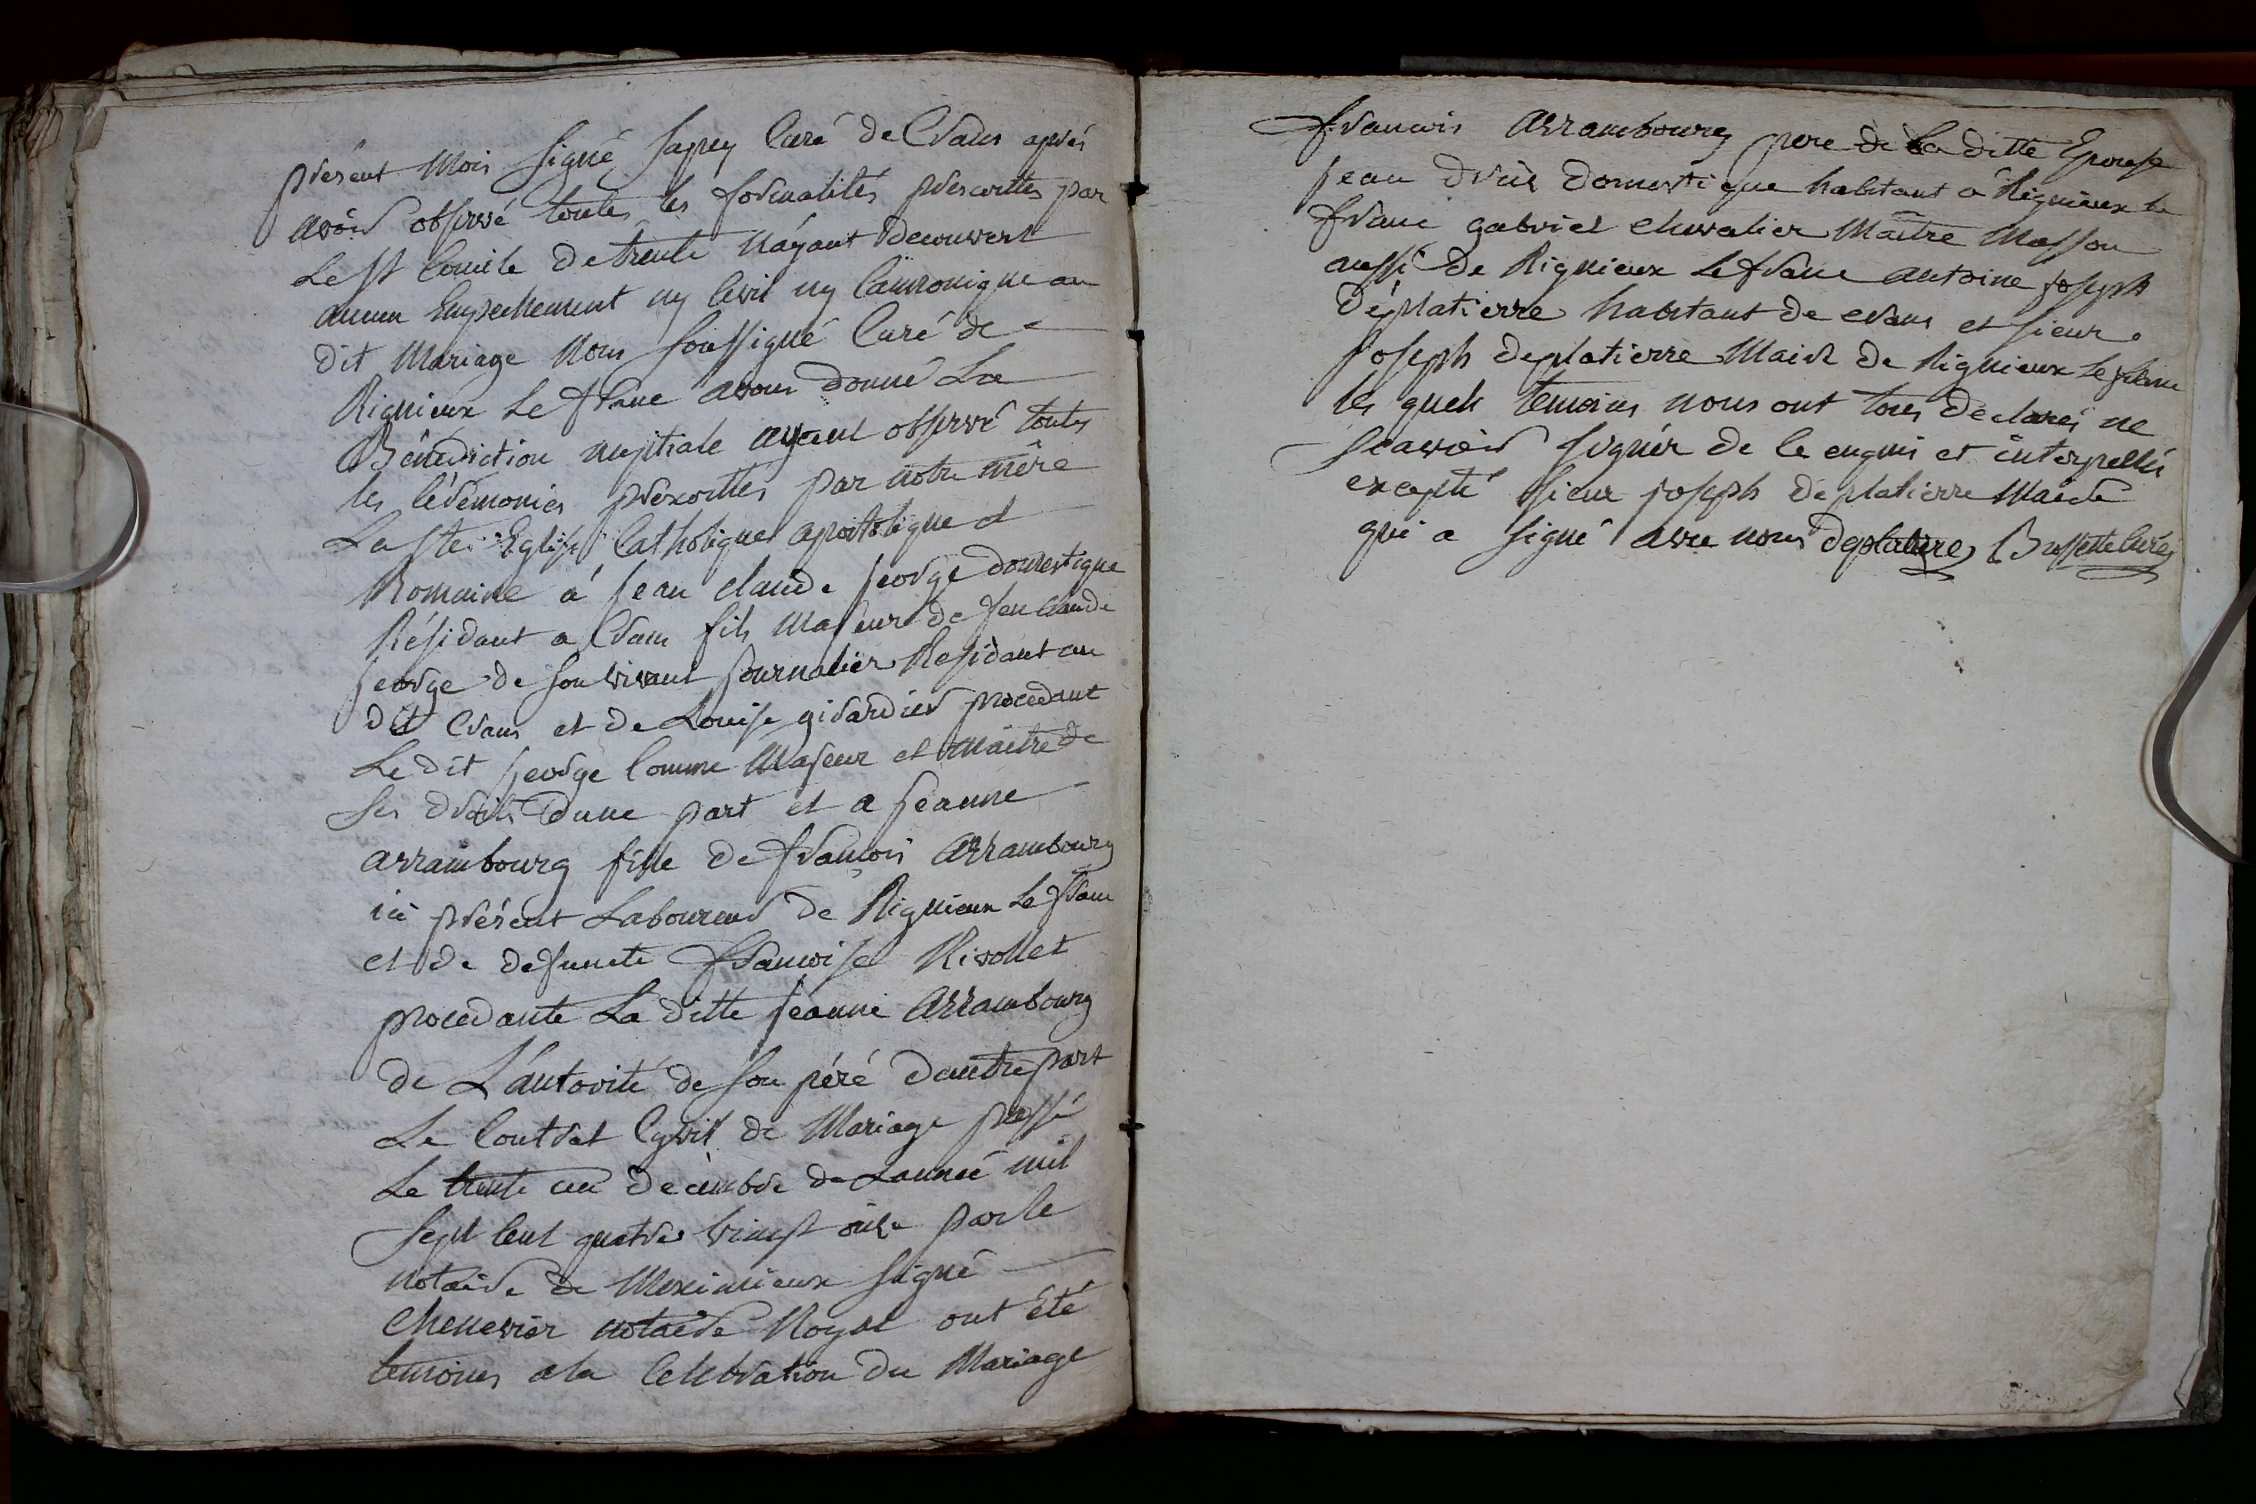 présent Mois signé Sapey Curé de Crans aprés
avoir observé toutes les formalités prescrittes par
Le st Concile de trente n'áyant decouvert
aucun Empechement ny Civil ny Canronique au
dit Mariage Nous soussigné Curé de
Rignieux Le franc avons donné La
Bénédiction nuptiale ayant observé toutes
les cérémonies prescrittes par notre mére
La ste Eglise Catholique apostolique et
Romaine á jean claude jeorge domestique
Résidant a Crans fils Majeur de feu claude
jeorge de son vivant journalier Residant au
dit Crans et de Louise girardier procedant
Le dit jeorge Comme Majeur et maitre de
ses droits d'une part et a jeanne
arrambourg fille de francois arrambourg
ici présent Laboureur de Rignieux Le franc
et de defuncte francoise Rivollet
procedante La ditte jeanne arrambourg
de L'autorité de son péré d'autre part
Le Contrat Cyvil de Mariage passé
Le trente un decembre de L'année mil
sept cent quatre vingt onze par le
notaire de Meximieux signé
chenevier notaire Royal ont été
temoins a la Celebration du Mariage
francois arrambourg pere de La ditte Epouse
jean domestique habitant a Rignieux le
franc gabriel chevalier Maitre Masson
aussi de Rignieux Le franc antoine joseph
déplatierre habitant de crans et sieur
joseph deplatierre Maire de Rignieux Le franc
les quels temoins nous ont tous déclarés ne
scavoir signér de ce enquis et interpellés
excepté sieur joseph déplatierre Maire
qui a signé avec nous deplatiere Bussette curé